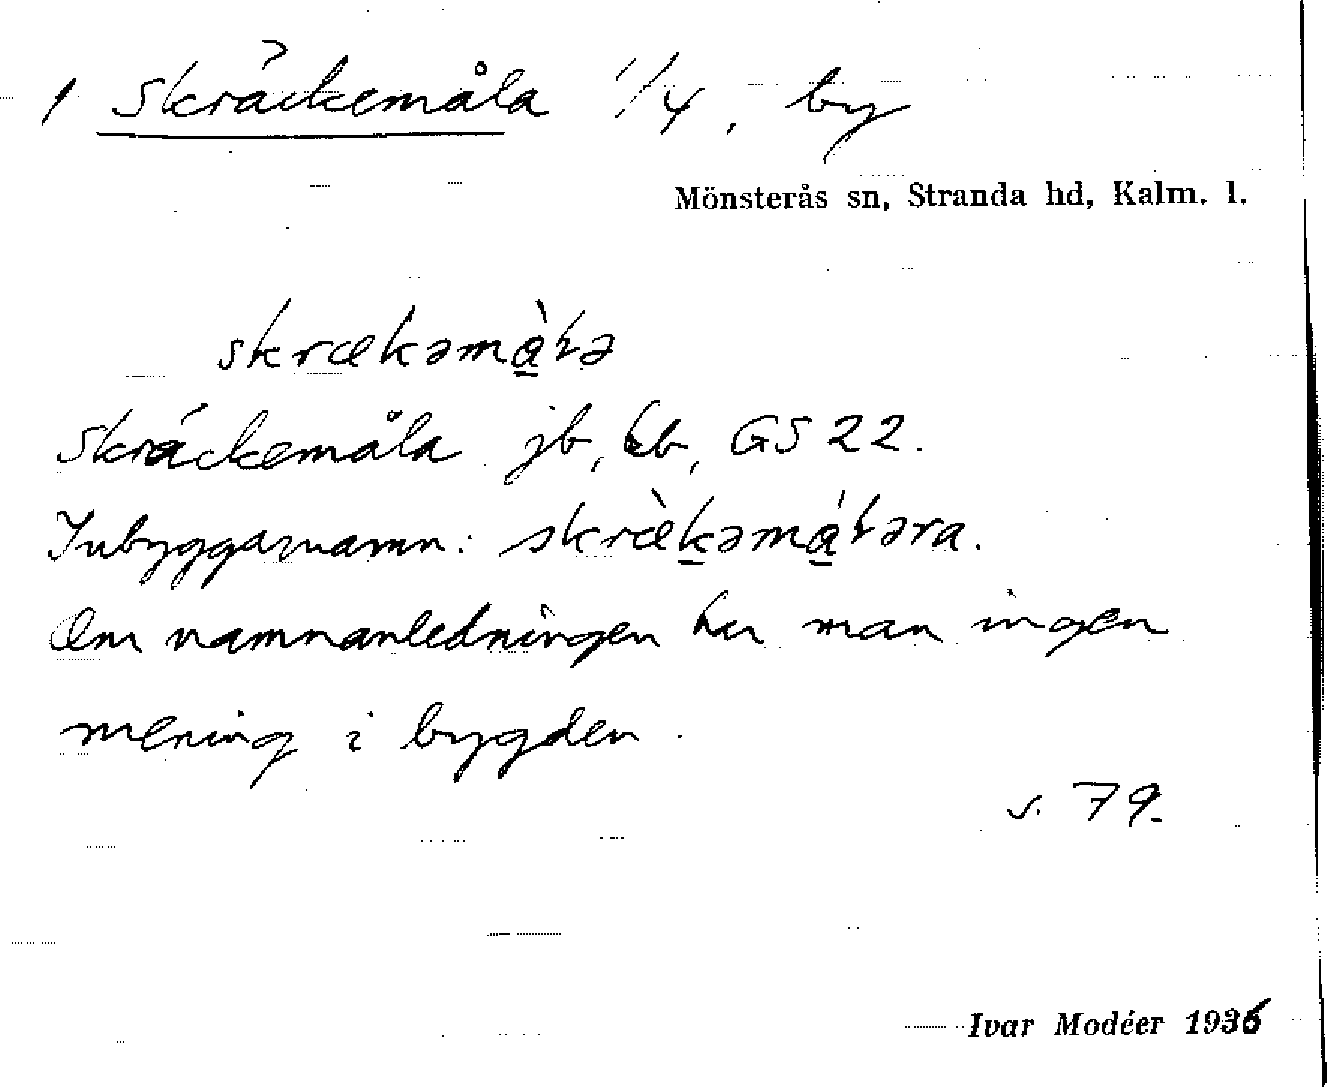 1 Skräckemåla 1/4, by
Mönsterås sn, Stranda hd, Kalm. l.
skrækəmà̱ɫa
Skräckemåla jb, kb, GS 22.
Inbyggarnamn: skræ̀ḵəmá̱ɫəra.
Om namnanledningen har man ingen
mening i bygden.
s. 79.
Ivar Modéer 1936